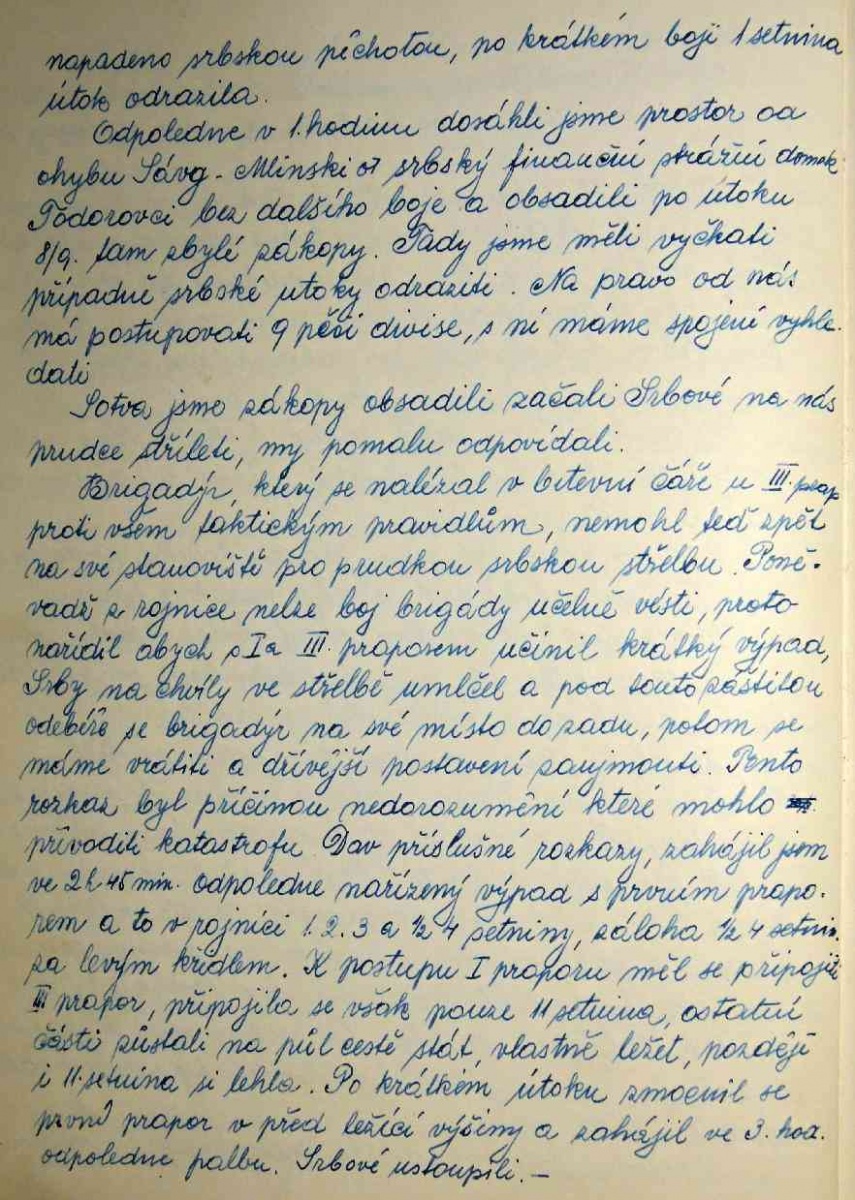 napadeno srbskou pěchotou, po krátkém boji 1 setnina
útok odrazila.
Odpoledne v 1. hodinu dosáhli jsme prostor od
ohybu Sávy - Mlinski ot srbský finanční strážní domek
Todorovci bez dalšího boje a obsadili po útoku
8/9. tam zbylé zákopy. Tady jsme měli vyčkati
případně srbské utoky odraziti. Na pravo od nás
má postupovati 9 pěší divise, s ní máme spojení vyhle-
dati
Sotva jsme zákopy obsadili začali Srbové na nás
prudce stříleti, my pomalu odpovídali.
Brigadýr, který se nalézal v bitevní čáře u III. prap
proti všem taktickým pravidlům, nemohl teď zpět
na své stanoviště pro prudkou srbskou střelbu. Poně-
vadž z rojnice nelze boj brigády učelně vésti, proto
nařídil abych s I a III. praporem učinil krátký výpad,
Srby na chvíly ve střelbě umlčel a pod touto záštitou
odebíře se brigadýr na své místo dozadu, potom se
máme vrátiti a dřívější postavení zaujmouti. Tento
rozkaz byl příčinou nedorozumění které mohlo
přivoditi katastrofu. Dav příslušné rozkazy, zahájil jsem
ve 2 h 45 min. odpoledne nařízený výpad s prvním prapo-
rem a to v rojnici 1. 2. 3 a ½ 4 setniny, záloha ½ 4 setnin.
za levým křídlem. K postupu I praporu měl se připojiti
III prapor, připojila se však pouze 11 setnina, ostatní
části zůstali na půl cestě stát, vlastně ležet, později
i 11. setnina si lehla. Po krátkém útoku zmocnil se
první prapor v před ležící výšiny a zahájil ve 3. hod.
odpoledne palbu. Srbové ustoupili. -